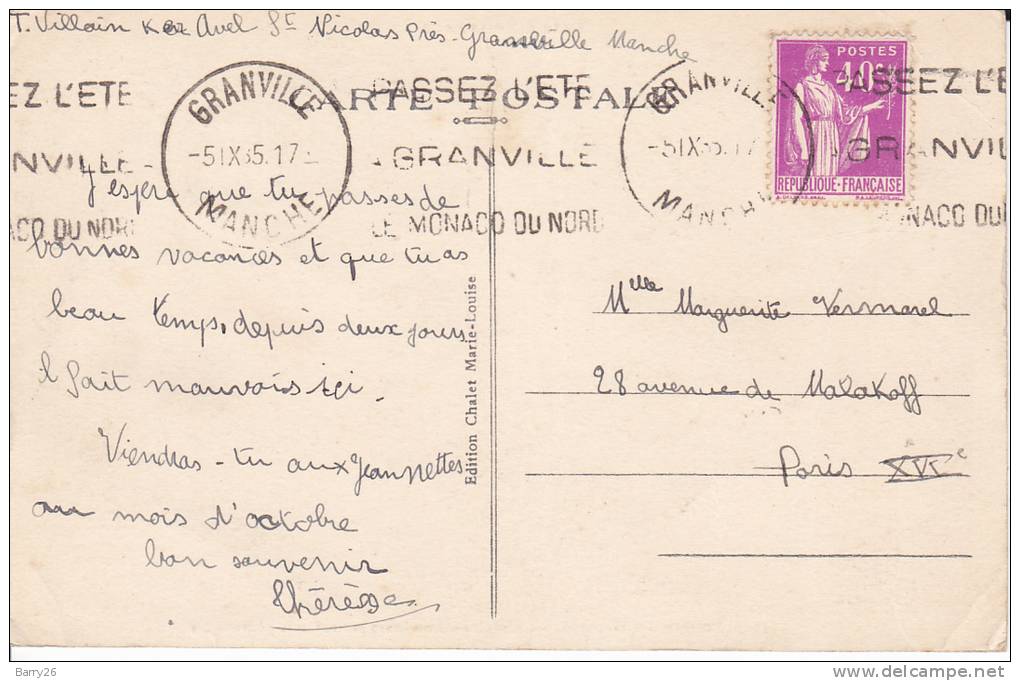 T. Villain Ker Avel St Nicolas Près Granville Manche
EZ L'ETE
NVILLE
ACO DU NORD
GRANVILLE
-5 IX 35.17
MANCHE
CARTE POSTALE
PASSEZ L'ETE
A GRANVILLE
LE MONACO DU NORD
GRANVILLE
-5 IX 35.17
MANCHE
POSTES
40c
REPUBLIQUE-FRANÇAISE
PASSEZ L'E
A GRANVIL
MONACO DU
J'espère que tu passes de
bonnes vacances et que tu as
beau temps, depuis deux jours
il fait mauvais ici.
Viendras-tu aux Jeannettes
au mois d'octobre
bon souvenir
Thérèse
Edition Chalet Marie-Louise
Mlle Marguerite Vermorel
28 avenue de Malakoff
Paris XVIe
Barry26
http://www.delcampe.net